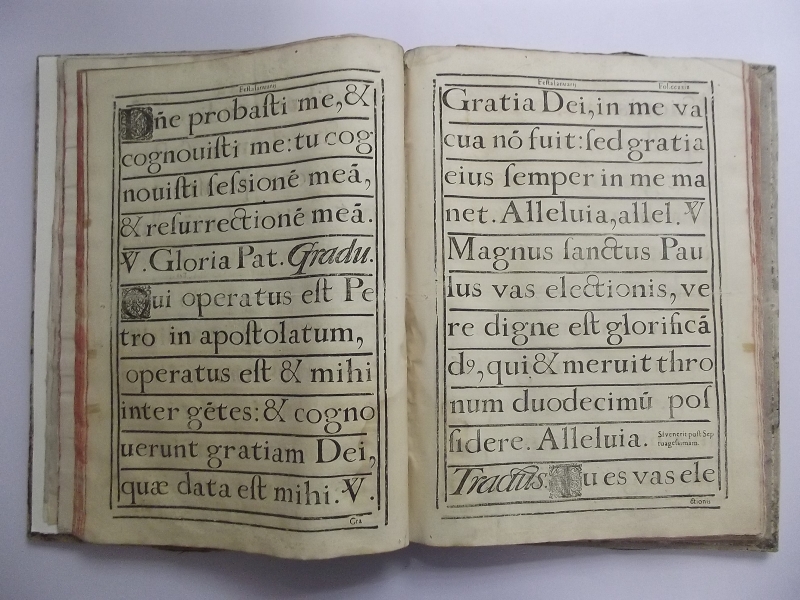 Festa Ianuarij
Dñe probaſti me, &
cognouiſti me: tu cog
nouiſti ſeſsionē meā,
& reſurrectionē meā.
℣. Gloria Pat. Gradu.
Qui operatus eſt Pe
tro in apoſtolatum,
operatus eſt & mihi
inter gētes: & cogno
uerunt gratiam Dei,
quæ data eſt mihi. ℣.
Gra
Festa Ianuarij
Gratia Dei, in me va
cua nō fuit: ſed gratia
eius ſemper in me ma
net. Alleluia, allel. ℣
Magnus ſanctus Pau
lus vas electionis, ve
re digne eſt glorificā
dꝰ, qui & meruit thro
num duodecimū poſ
ſidere. Alleluia. Si venerit poſt Sep
tuageſsimam.
Tractus. Tu es vas ele
ctionis